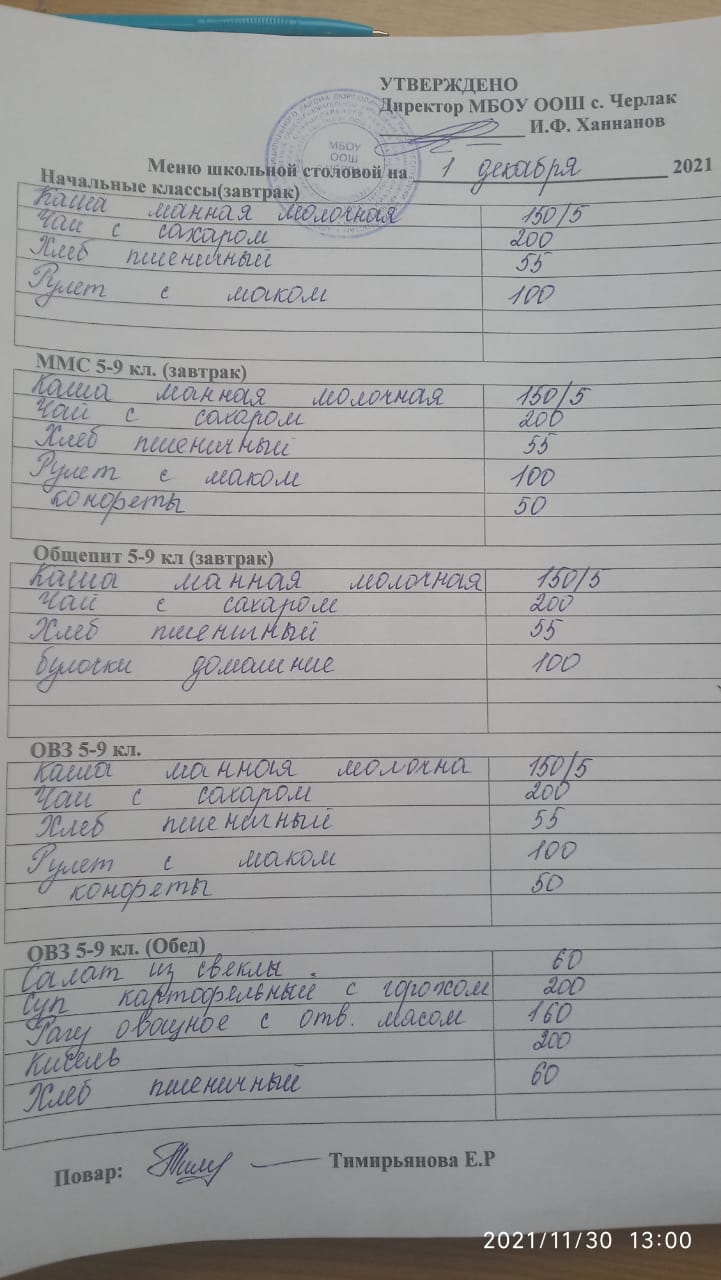 УТВЕРЖДЕНО
Директор МБОУ ООШ с. Черлак
И.Ф. Ханнанов
МБОУ
ООШ
Меню школьной столовой на 1 декабря 2021
Начальные классы(завтрак)
Каша манная молочная 150/5
Чай с сахаром 200
Хлеб пшеничный 55
Рулет с маком 100
ММС 5-9 кл. (завтрак)
Каша манная молочная 150/5
Чай с сахаром 200
Хлеб пшеничный 55
Рулет с маком 100
конфеты 50
Общепит 5-9 кл (завтрак)
Каша манная молочная 150/5
Чай с сахаром 200
Хлеб пшеничный 55
булочки домашние 100
ОВЗ 5-9 кл.
Каша манная молочна 150/5
Чай с сахаром 200
Хлеб пшеничный 55
Рулет с маком 100
конфеты 50
ОВЗ 5-9 кл. (Обед)
Салат из свеклы 60
Суп картофельный с горохом 200
Рагу овощное с отв. мясом 160
Кисель 200
Хлеб пшеничный 60
Повар: Тимирьянова Е.Р
2021/11/30 13:00